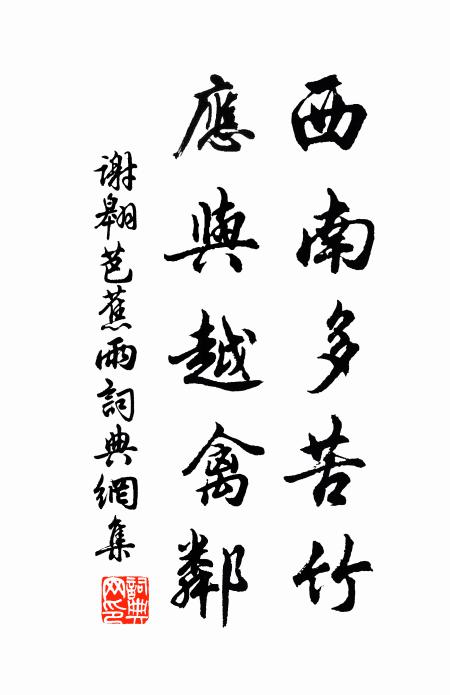 西南多苦竹
應與越禽鄰
謝翱芭蕉雨詞典網集
詞典網印